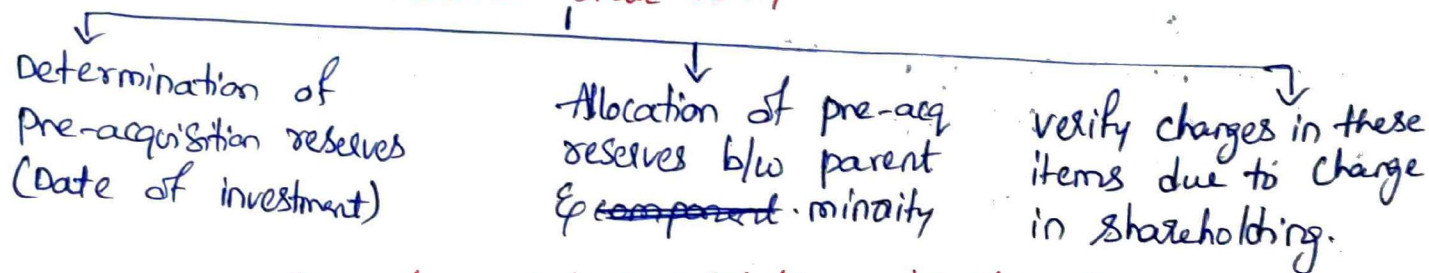 Determination of
Pre-acquisition reserves
(Date of investment)
Allocation of pre-acq
reserves b/w parent
& component. minaity
verify changes in these
items due to change
in shareholding.